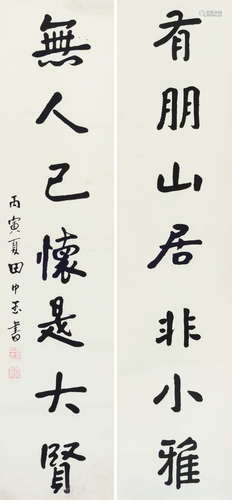 有朋山居非小雅
無人已懷是大賢
丙寅夏田中玉書